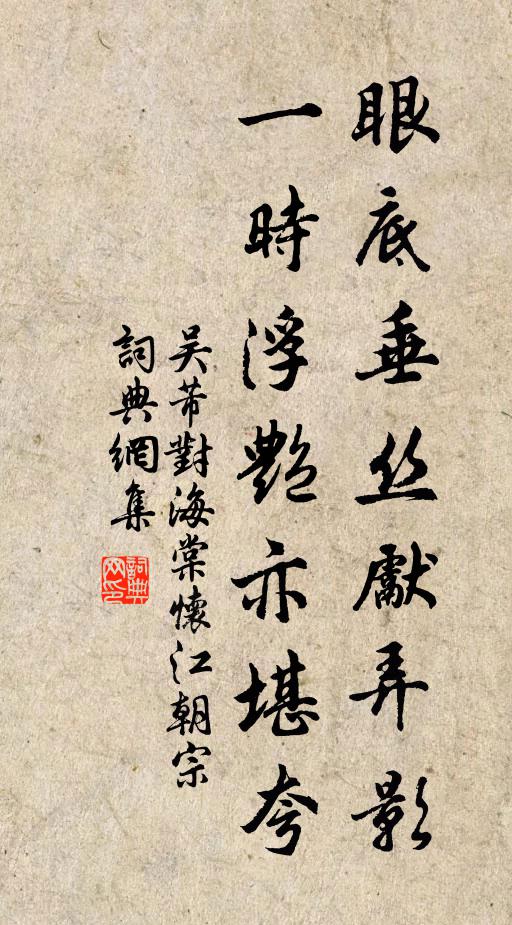 眼底垂丝獻弄影
一時浮艷亦堪夸
吴芾對海棠懷江朝宗
詞典網集
詞典網印